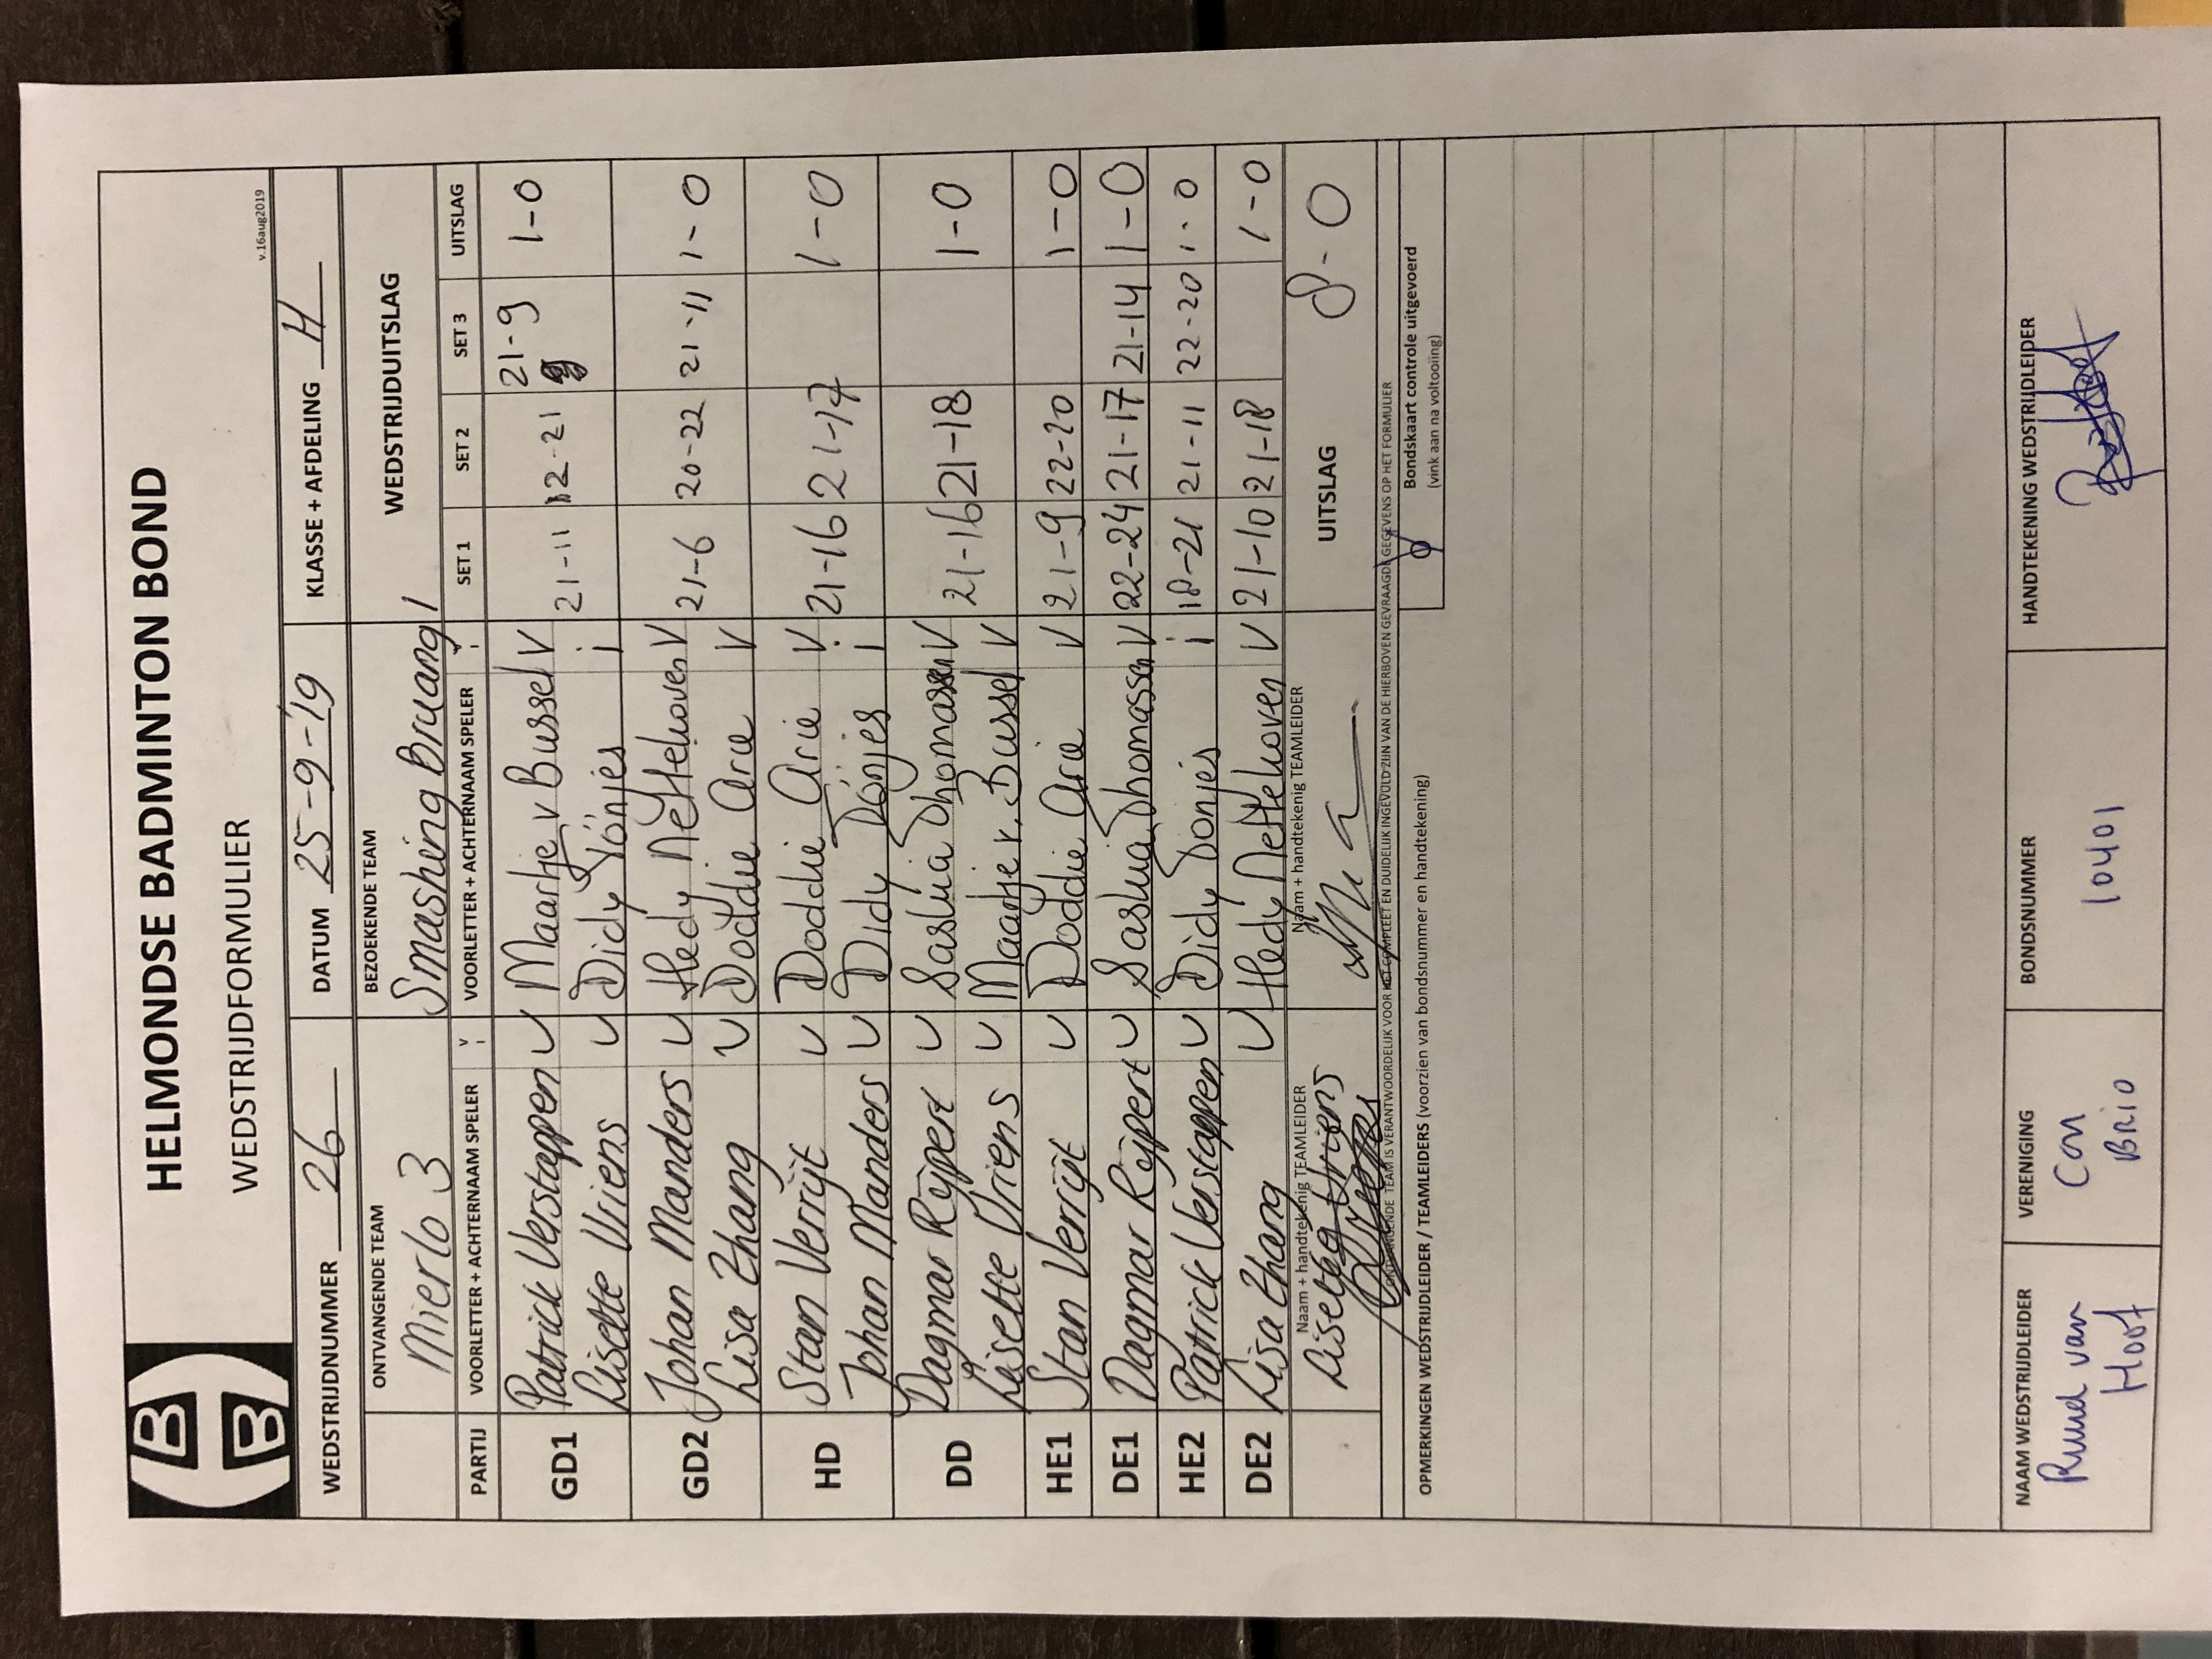 HELMONDSE BADMINTON BOND
WEDSTRIJDFORMULIER
v.16aug2019
WEDSTRIJDNUMMER 26 DATUM 25-9-'19 KLASSE + AFDELING H
ONTVANGENDE TEAM BEZOEKENDE TEAM WEDSTRIJDUITSLAG
Mierlo 3 Smashing Bruang 1
PARTIJ VOORLETTER + ACHTERNAAM SPELER V VOORLETTER + ACHTERNAAM SPELER SET 1 SET 2 SET 3 UITSLAG
GD1 Patrick Verstappen V Maartje v Bussel V 21-11 12-21 21-9 1-0
Lisette Vriens V Didy Tönjes i
GD2 Johan Manders V Hedy Nettelhoven V 21-6 20-22 21-11 1-0
Lisa Zhang V Doddie Arie V
HD Stan Verrijt V Doddie Arie V 21-16 21-17 1-0
Johan Manders V Didy Tönjes i
DD Dagmar Rijpert V Saskia Thomassen V 21-16 21-18 1-0
Lisette Vriens V Maartje v. Bussel V
HE1 Stan Verrijt V Doddie Arie V 21-9 22-20 1-0
DE1 Dagmar Rijpert V Saskia Thomassen V 22-24 21-17 21-14 1-0
HE2 Patrick Verstappen V Didy Tonjes i 18-21 21-11 22-20 1-0
DE2 Lisa Zhang V Hedy Nettelhoven V 21-10 21-18 1-0
Naam + handtekenig TEAMLEIDER Naam + handtekenig TEAMLEIDER UITSLAG 8-0
Vriens
ONTVANGENDE TEAM IS VERANTWOORDELIJK VOOR HET COMPLEET EN DUIDELIJK INGEVULD ZIJN VAN DE HIERBOVEN GEVRAAGDE GEGEVENS OP HET FORMULIER
OPMERKINGEN WEDSTRIJDLEIDER / TEAMLEIDERS (voorzien van bondsnummer en handtekening)
Bondskaart controle uitgevoerd
(vink aan na voltooiing)
NAAM WEDSTRIJDLEIDER VERENIGING BONDSNUMMER HANDTEKENING WEDSTRIJDLEIDER
Ruud van Hoof Con Brio 10401